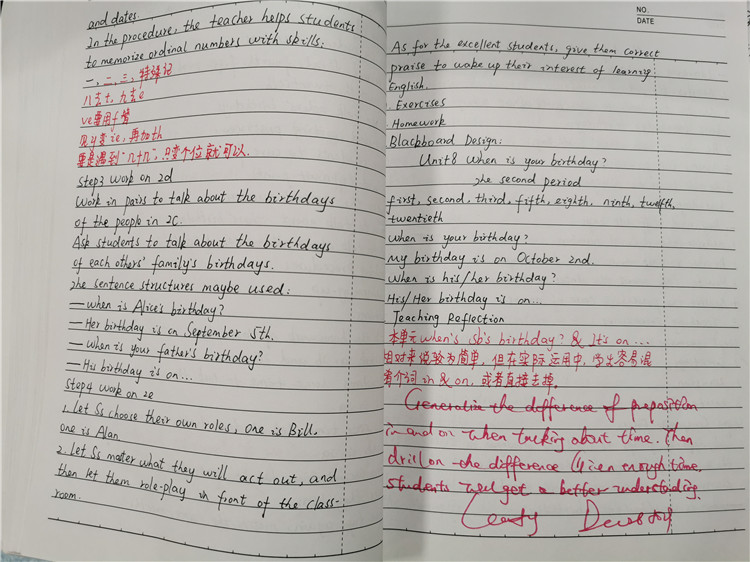 and dates.
In the procedure, the teacher helps students
to memorize ordinal numbers with skills:
一、二、三，特殊记
八去t，九去e
ve要用f替
见y变ie，再加th
要是遇到"几十几"，只变个位就可以.
Step3 Work on 2d
Work in pairs to talk about the birthdays
of the people in 2C.
Ask students to talk about the birthdays
of each others' family's birthdays.
The sentence structures maybe used:
—When is Alice's birthday?
—Her birthday is on September 5th.
—When is your father's birthday?
—His birthday is on...
Step4 Work on 2e
1. Let Ss choose their own roles, one is Bill.
one is Alan
2. Let Ss master what they will act out, and
then let them role-play in front of the class-
room.
NO.
DATE
As for the excellent students, give them correct
praise to wake up their interest of learning
English.
Exercises
Homework
Blackboard Design:
Unit8 When is your birthday?
The second period
first, second, third, fifth, eighth, ninth, twelfth,
twentieth
When is your birthday?
My birthday is on October 2nd.
When is his/her birthday?
His/Her birthday is on...
Teaching Reflection
本单元when's sb's birthday? & It's on...
相对来说较为简单，但在实际运用中，学生容易混
淆介词 in & on，或者直接去掉.
Generalize the difference of preposition
in and on when talking about time. Then
drill on the difference Given enough time,
students will get a better understanding.